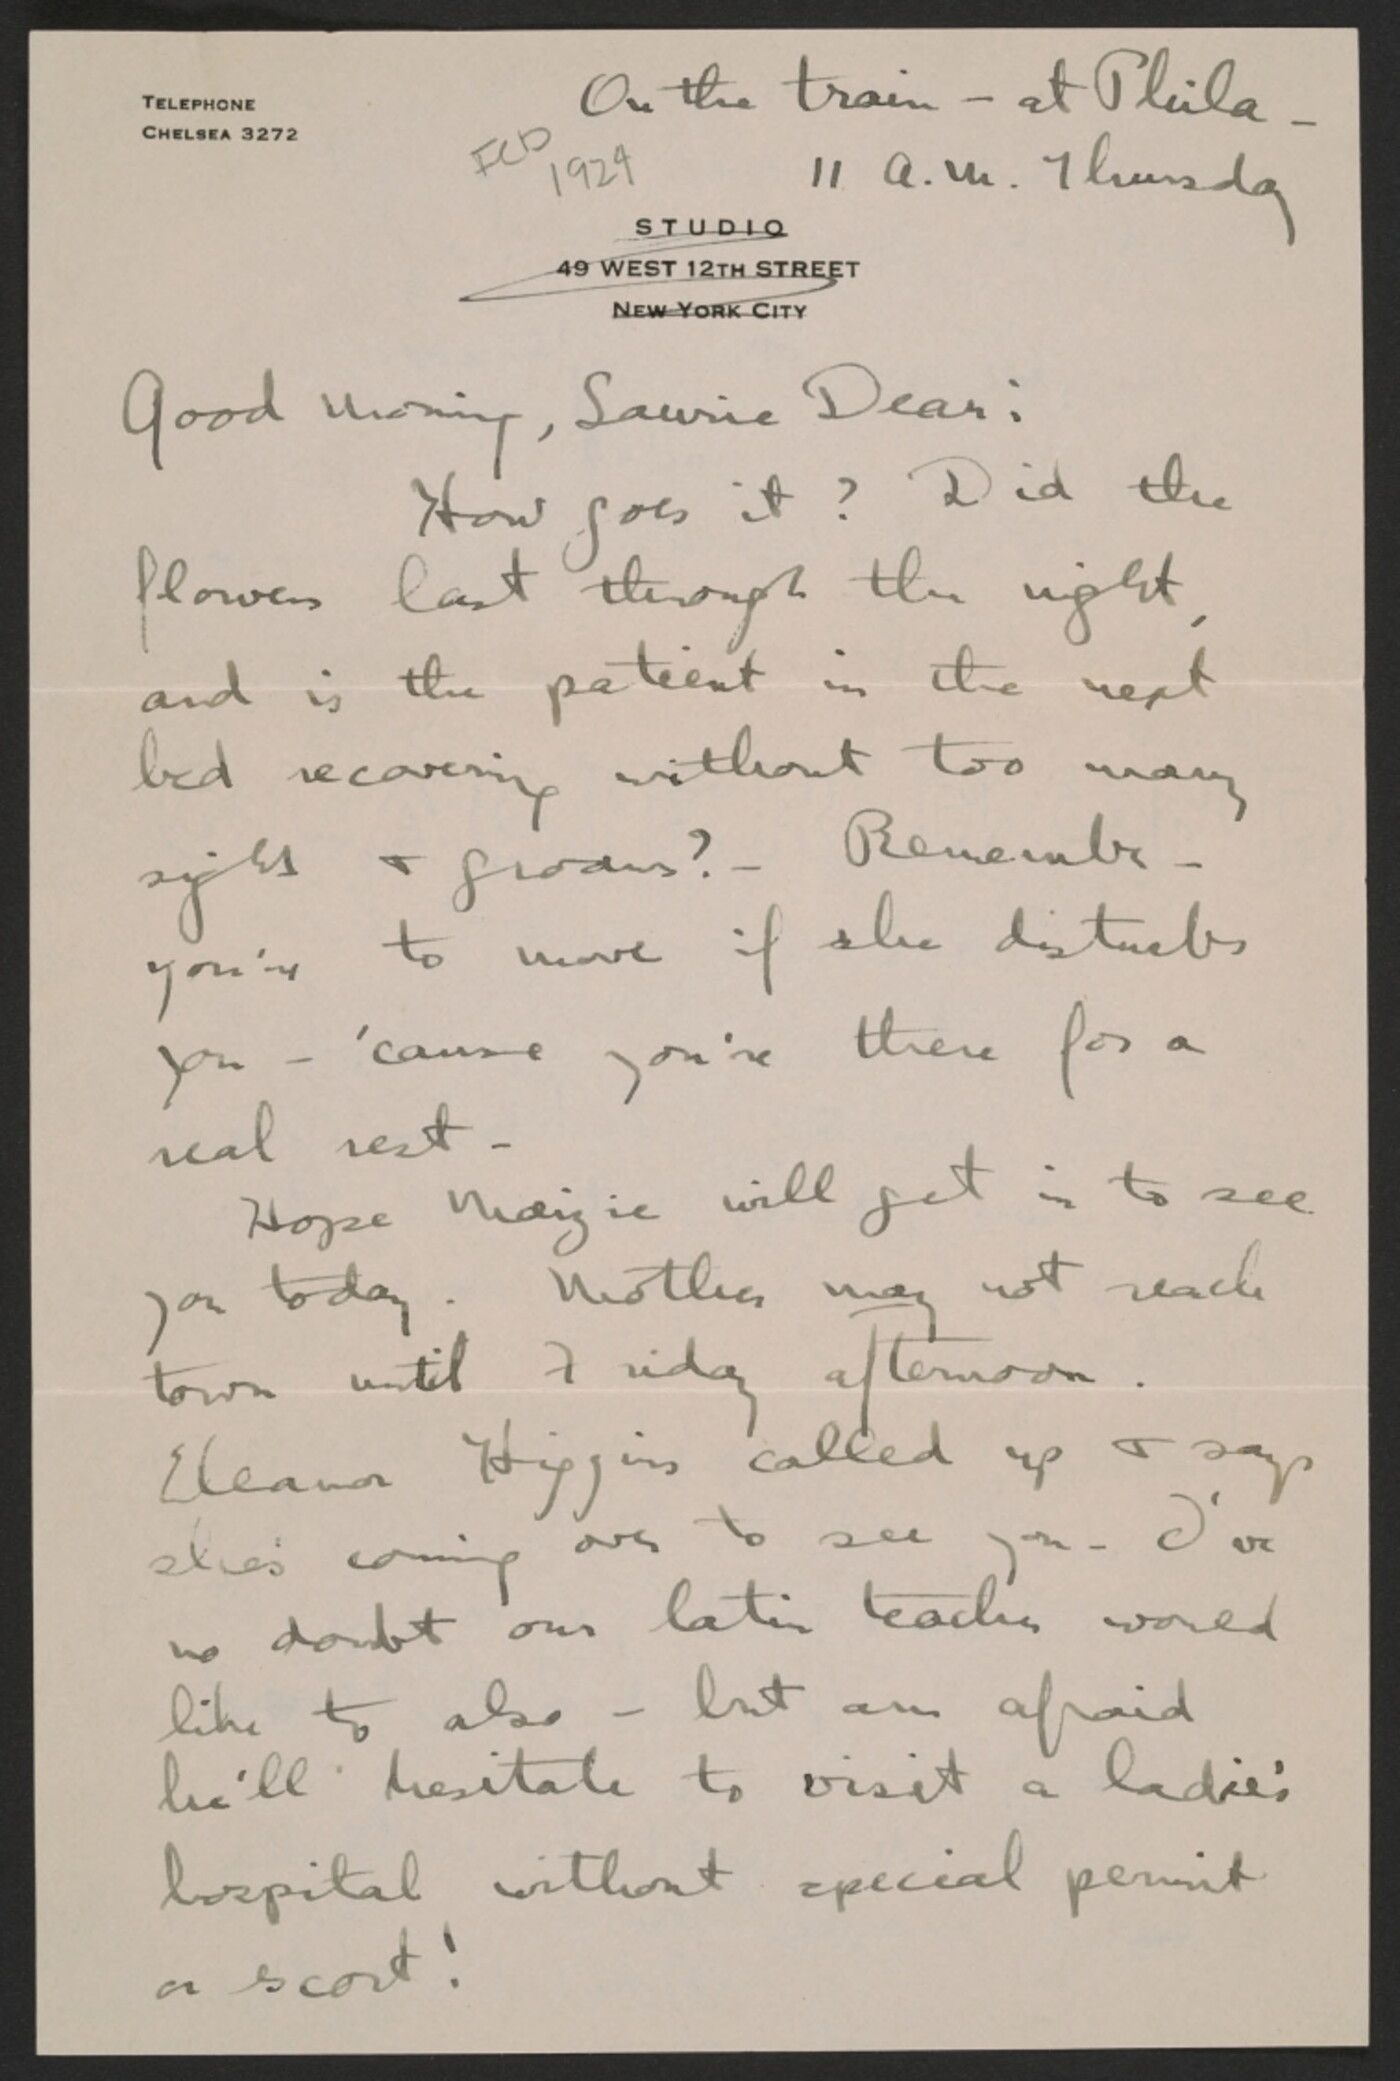 TELEPHONE
CHELSEA 3272
On the train - at Phila -
11 a.m. Thursday
1924
STUDIO
49 WEST 12TH STREET
NEW YORK CITY
Good morning, Laurie Dear:
How goes it? Did the
flowers last through the night,
and is the patient in the next
bed recovering without too many
sighs & groans? - Remember -
you're to move if she disturbs
you - 'cause you're there for a
real rest -
Hope Maizie will get in to see
you today. Mother may not reach
town until Friday afternoon.
Eleanor Higgins called up & says
she's coming over to see you - I've
no doubt our latin teacher would
like to also - but am afraid
he'll hesitate to visit a ladie's
hospital without special permit
or scort!